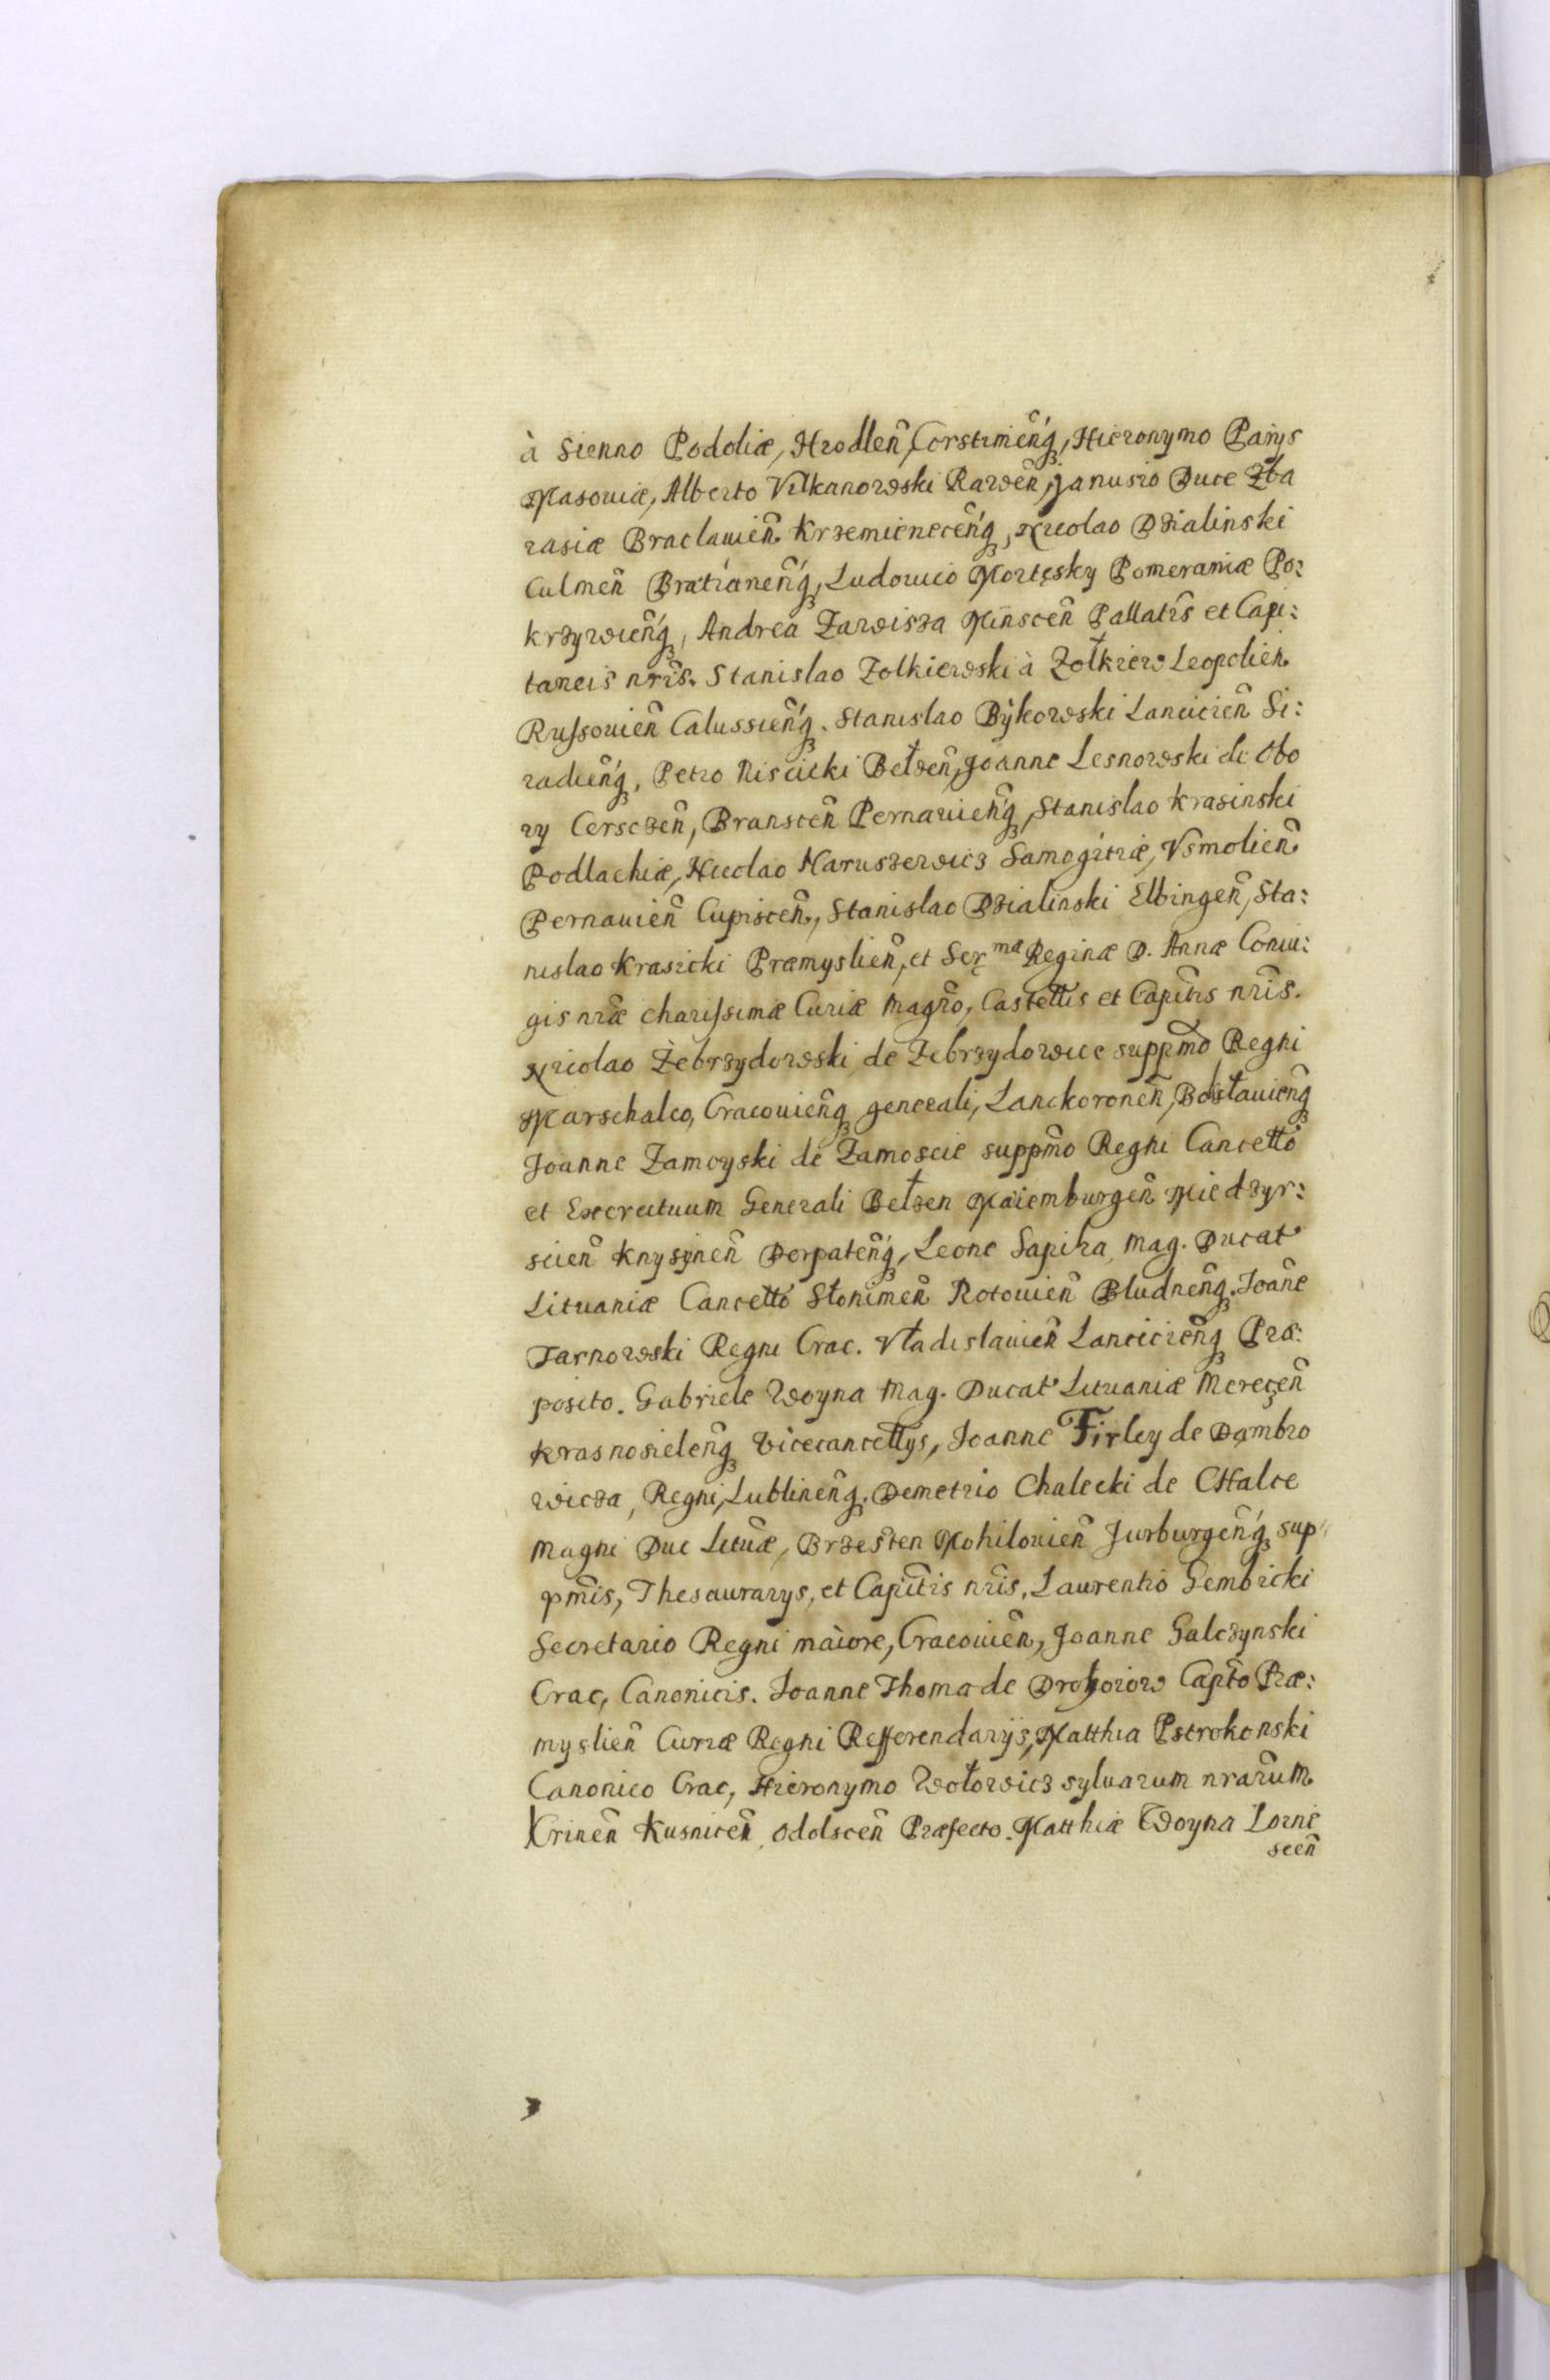 à Sienno Podoliæ, Hrodleñ, Corstimeñq́ꝫ, Hieronymo Parys
Masouiæ, Alberto Vilkanowski Raweñ, Janusio Duce Zba
rasiæ Braclauieñ. Krzemieneceñq́ꝫ, Nicolao Dzialinski
Culmeñ Bratianeñq́ꝫ, Ludouico Mortęsky Pomeraniæ Po:
krzywieñq́ꝫ, Andrea Zawisza Minsceñ Pallatĩs et Capi:
taneis nr̃is. Stanislao Zolkiewski à Zołkiew Leopolieñ.
Rußouieñ Calussieñq́ꝫ. Stanislao Bÿkowski Lancicieñ Si:
radieñq́ꝫ, Petro Niscicki Bełzeñ, Joanne Lesnowski de Obo
ry Cersczeñ, Bransceñ Pernauieñq́ꝫ, Stanislao Krasinski
Podlachiæ, Nicolao Naruszewicz Samogitiæ, Vsmolieñ
Pernauieñ Cupisceñ, Stanislao Dzialinski Elbingeñ, Sta:
nislao Krasicki Præmyslieñ, et Serᵐᵃᵉ Reginæ D. Annæ Coniu:
gis nr̃æ charißimæ Curiæ Magr̃o, Castełłis et Capitĩs nr̃is.
Nicolao Żebrzydowski de Zebrzydowice suppm̃o Regni
Marschalco, Cracouieñqꝫ generali, Lanckoroneñ, Bolsłauieñqꝫ
Joanne Zamoyski de Zamoscie suppm̃o Regni Cancełło
et Exercituum Generali Bełzen Mariemburgeñ Miedzyr:
scieñ Knysyneñ Derpateñq́ꝫ, Leone Sapiha Mag. Ducat
Lituaniæ Cancełło Słonimeñ Rotouieñ Bludneñqꝫ. Joañe
Tarnowski Regni Crac. Vładislauieñ Lancicieñqꝫ Præ:
posito. Gabriele Woyna Mag. Ducat Lituaniæ Mereceñ
Krasnosieleñqꝫ Vicecancełłys, Joanne Firley de Dąmbro
wicza, Regni, Lublineñqꝫ. Demetrio Chalecki de CHalce
Magni Duc Lituæ, Brzesten Mohilouieñ Jurburgeñq́ꝫ sup
pm̃is, Thesaurarys, et Capitĩs nr̃is, Laurentio Gembicki
Secretario Regni maiore, Cracouieñ, Joanne Galczynski
Crac, Canonicis. Joanne Thoma de Drohoiow Capto Præ:
myslieñ Curiæ Regni Refferendarijs, Matthia Pstrokonski
Canonico Crac, Hieronymo Wołowicz syluarum nrarum
Krineñ Kusniceñ, Odolsceñ Præfecto. Matthiæ Woyna Lorni
sceñ